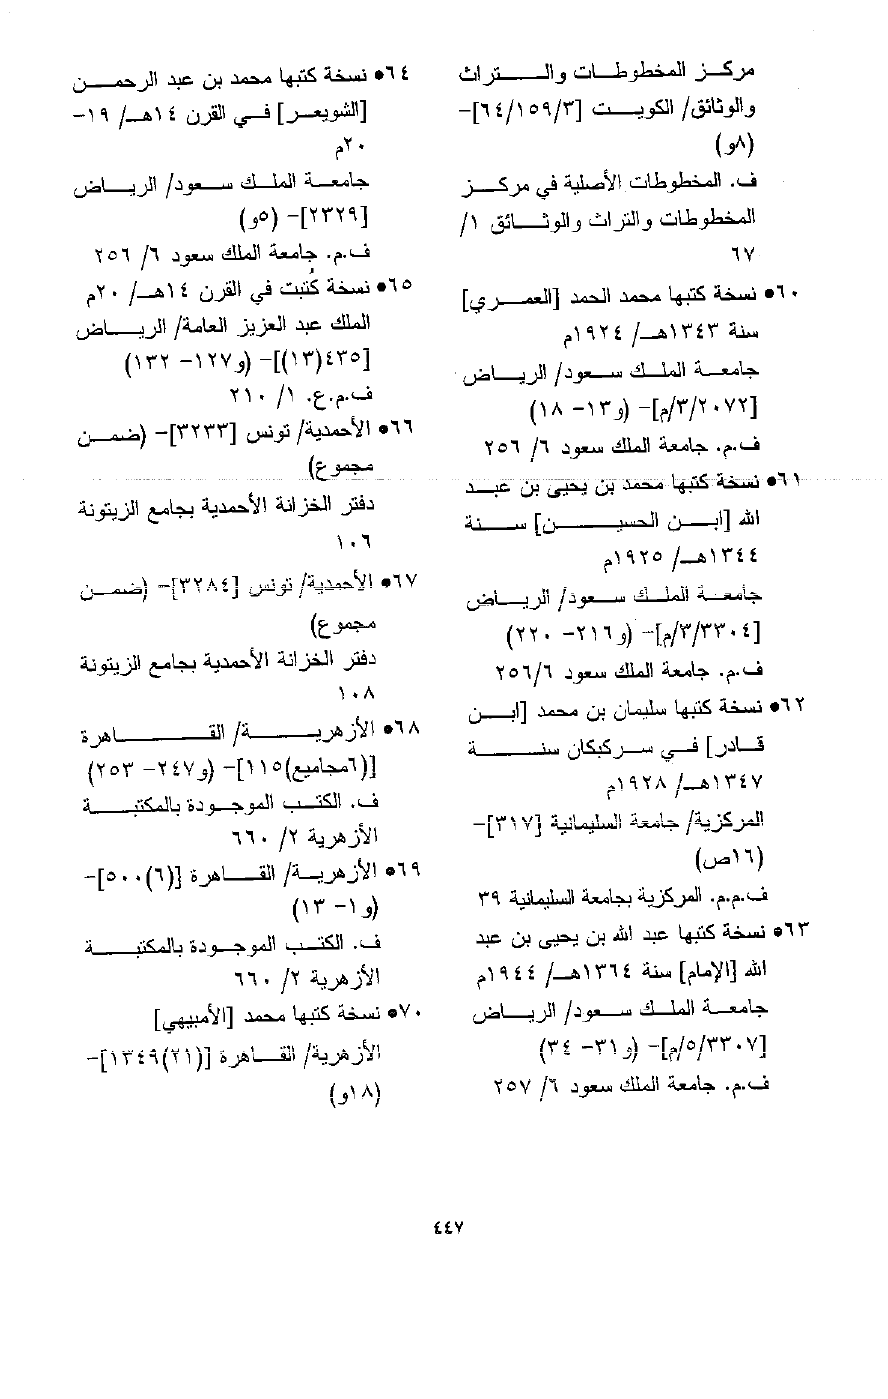 مركز المخطوطات والتراث
والوثائق/ الكويت [٦٤/١٥٩/٣]-
(٨و)
ف. المخطوطات الأصلية في مركز
المخطوطات والتراث والوثائق ١/
٦٧
٦٠• نسخة كتبها محمد الحمد [العمري]
سنة ١٣٤٣هـ/ ١٩٢٤م
جامعة الملك سعود/ الرياض
[٣/٢٠٧٢/م]- (و١٣- ١٨)
ف.م. جامعة الملك سعود ٦/ ٢٥٦
٦١• نسخة كتبها محمد بن يحيى بن عبد
الله [ابن الحسين] سنة
١٣٤٤هـ/ ١٩٢٥م
جامعة الملك سعود/ الرياض
[٣/٣٣٠٤/م]- (و٢١٦- ٢٢٠)
ف.م. جامعة الملك سعود ٢٥٦/٦
٦٢• نسخة كتبها سليمان بن محمد [ابن
قادر] في سركبكان سنة
١٣٤٧هـ/ ١٩٢٨م
المركزية/ جامعة السليمانية [٣١٧]-
(١٦ص)
ف.م.م. المركزية بجامعة السليمانية ٣٩
٦٣• نسخة كتبها عبد الله بن يحيى بن عبد
الله [الإمام] سنة ١٣٦٤هـ/ ١٩٤٤م
جامعة الملك سعود/ الرياض
[٥/٣٣٠٧/م]- (و٣١- ٣٤)
ف.م. جامعة الملك سعود ٦/ ٢٥٧
٦٤• نسخة كتبها محمد بن عبد الرحمن
[الشويعر] في القرن ١٤هـ/ ١٩-
٢٠م
جامعة الملك سعود/ الرياض
[٢٣٢٩]- (٥و)
ف.م. جامعة الملك سعود ٦/ ٢٥٦
٦٥• نسخة كُتبت في القرن ١٤هـ/ ٢٠م
الملك عبد العزيز العامة/ الرياض
[٤٣٥(١٣)]- (و١٢٧- ١٣٢)
ف.م.ع. ١/ ٢١٠
٦٦• الأحمدية/ تونس [٣٢٣٣]- (ضمن
مجموع)
دفتر الخزانة الأحمدية بجامع الزيتونة
١٠٦
٦٧• الأحمدية/ تونس [٣٢٨٤]- (ضمن
مجموع)
دفتر الخزانة الأحمدية بجامع الزيتونة
١٠٨
٦٨• الأزهرية/ القاهرة
[(٦مجاميع)١١٥]- (و٢٤٧- ٢٥٣)
ف. الكتب الموجودة بالمكتبة
الأزهرية ٢/ ٦٦٠
٦٩• الأزهرية/ القاهرة [(٦)٥٠٠]-
(و١- ١٣)
ف. الكتب الموجودة بالمكتبة
الأزهرية ٢/ ٦٦٠
٧٠• نسخة كتبها محمد [الأمبيهي]
الأزهرية/ القاهرة [(٢١)١٣٤٩]-
(١٨و)
٤٤٧